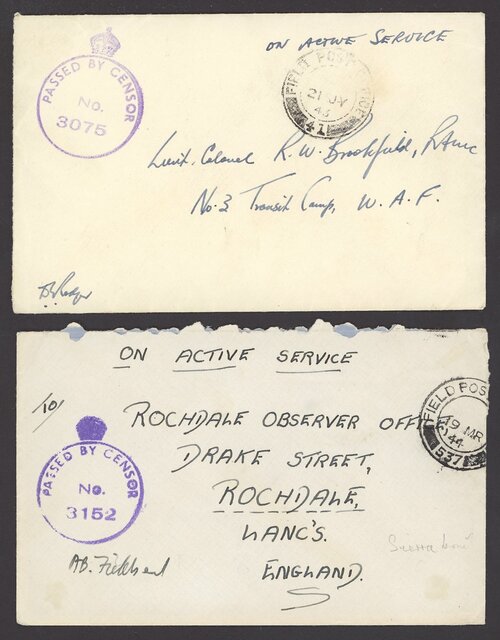 ON ACTIVE SERVICE
PASSED BY CENSOR
No.
3075
FIELD POST OFFICE
21 JY
43
471
Lieut. Colonel R.W. Brookfield, RAMC
No. 3 Transit Camp, W.A.F.
ON ACTIVE SERVICE
/10/
ROCHDALE OBSERVER OFFICE
DRAKE STREET,
ROCHDALE,
LANC'S.
ENGLAND.
PASSED BY CENSOR
No.
3152
FIELD POS
19 MR
44
537
AB.